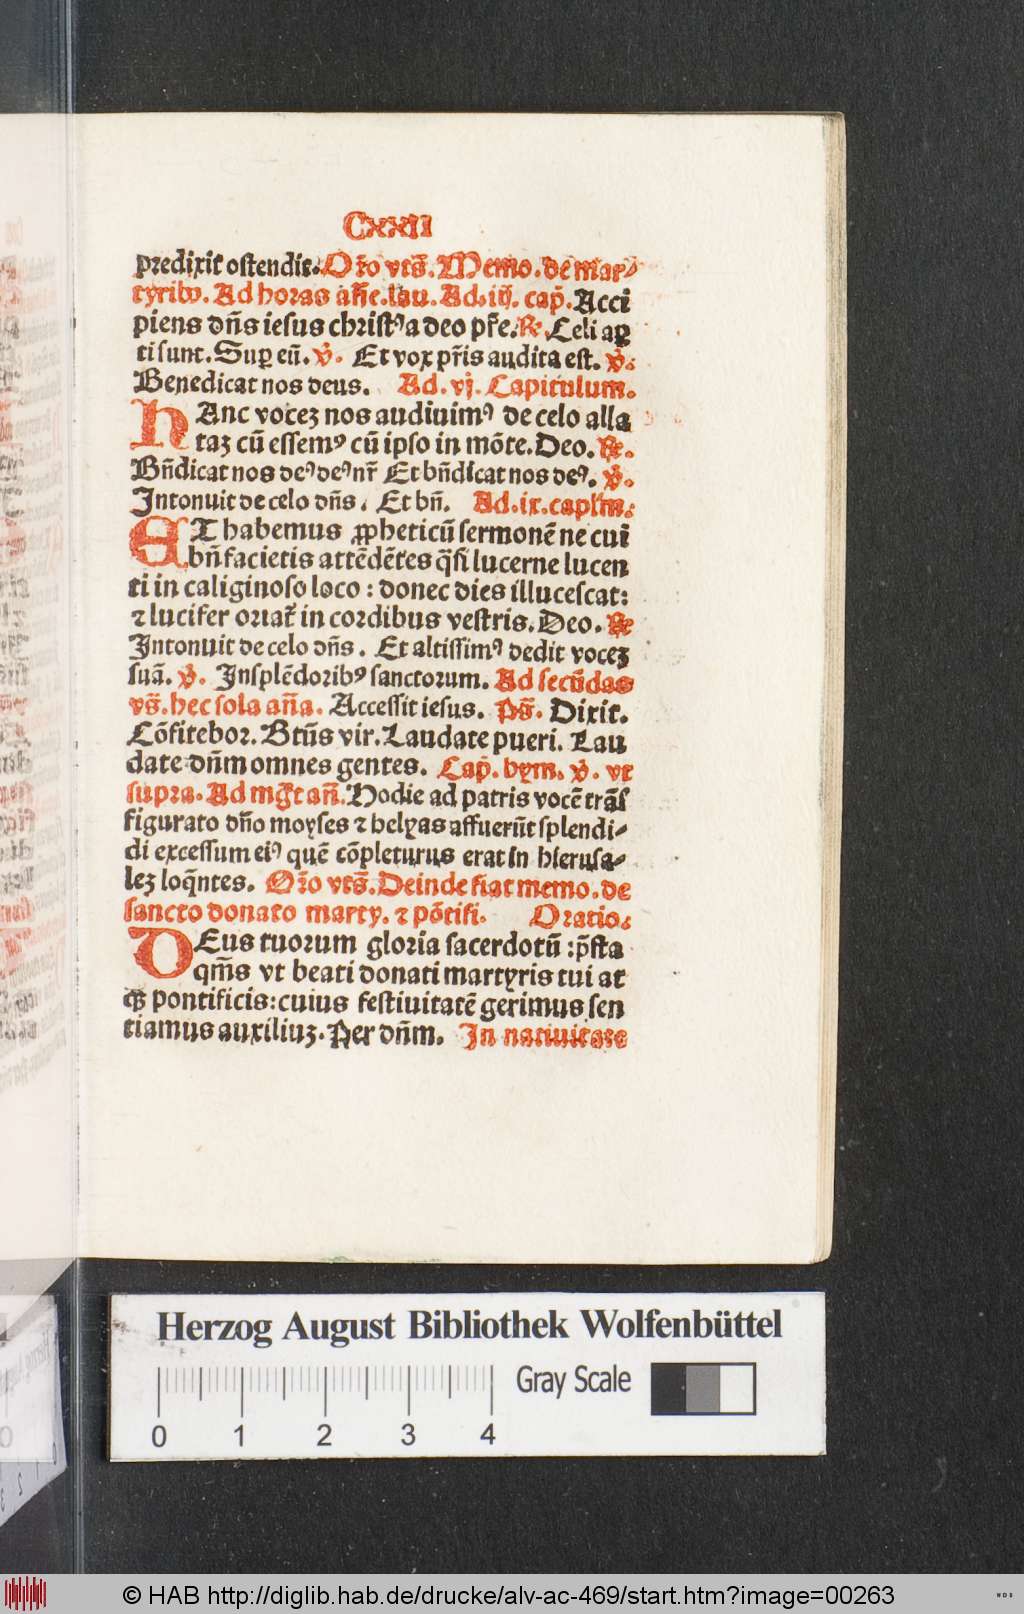 Cxxii
predixit ostendit. Or̄o vts̄. Memo. de mar⸗
tyribꝰ. Ad horas ān̄e. lau. Ad. iij. cap̄. Acci
piens dn̄s iesus christꝰ a deo pr̄e. ℟. Celi aꝑ
ti sunt. Suꝑ eū. ℣. Et vox pr̄is audita est. ℣.
Benedicat nos deus. Ad. vj. Capitulum.
HAnc vocez nos audiuimꝰ de celo alla
taz cū essemꝰ cū ipso in mōte. Deo. ℟.
Bn̄dicat nos deꝰ deꝰ nr̄ Et bn̄dicat nos deꝰ. ℣.
Intonuit de celo dn̄s. Et bn̄. Ad. ix. capl'm.
ET habemus ꝓpheticū sermonē ne cui
bn̄ facietis attēdētes q̄si lucerne lucen
ti in caliginoso loco : donec dies illucescat:
⁊ lucifer oriat̄ in cordibus vestris. Deo. ℟
Intonuit de celo dn̄s. Et altissimꝰ dedit vocez
suā. ℣. In splēdoribꝰ sanctorum. Ad secūdas
vs̄. hec sola an̄a. Accessit iesus. Ps̄. Dixit.
Cōfitebor. Btūs vir. Laudate pueri. Lau
date dn̄m omnes gentes. Cap̄. hym. ℣. vt
supra. Ad mḡt an̄. Hodie ad patris vocē trās
figurato dn̄o moyses ⁊ helyas affuerūt splendi⸗
di excessum eiꝰ quē cōpleturus erat in hierusa⸗
lez loq̄ntes. Or̄o vts̄. Deinde fiat memo. de
sancto donato marty. ⁊ pōtifi. Oratio.
DEus tuorum gloria sacerdotū : p̄sta
qm̄s vt beati donati martyris tui at
qꝫ pontificis: cuius festiuitatē gerimus sen
tiamus auxiliuz. Per dn̄m. In natiuitate
Herzog August Bibliothek Wolfenbüttel
Gray Scale
0 1 2 3 4
© HAB http://diglib.hab.de/drucke/alv-ac-469/start.htm?image=00263